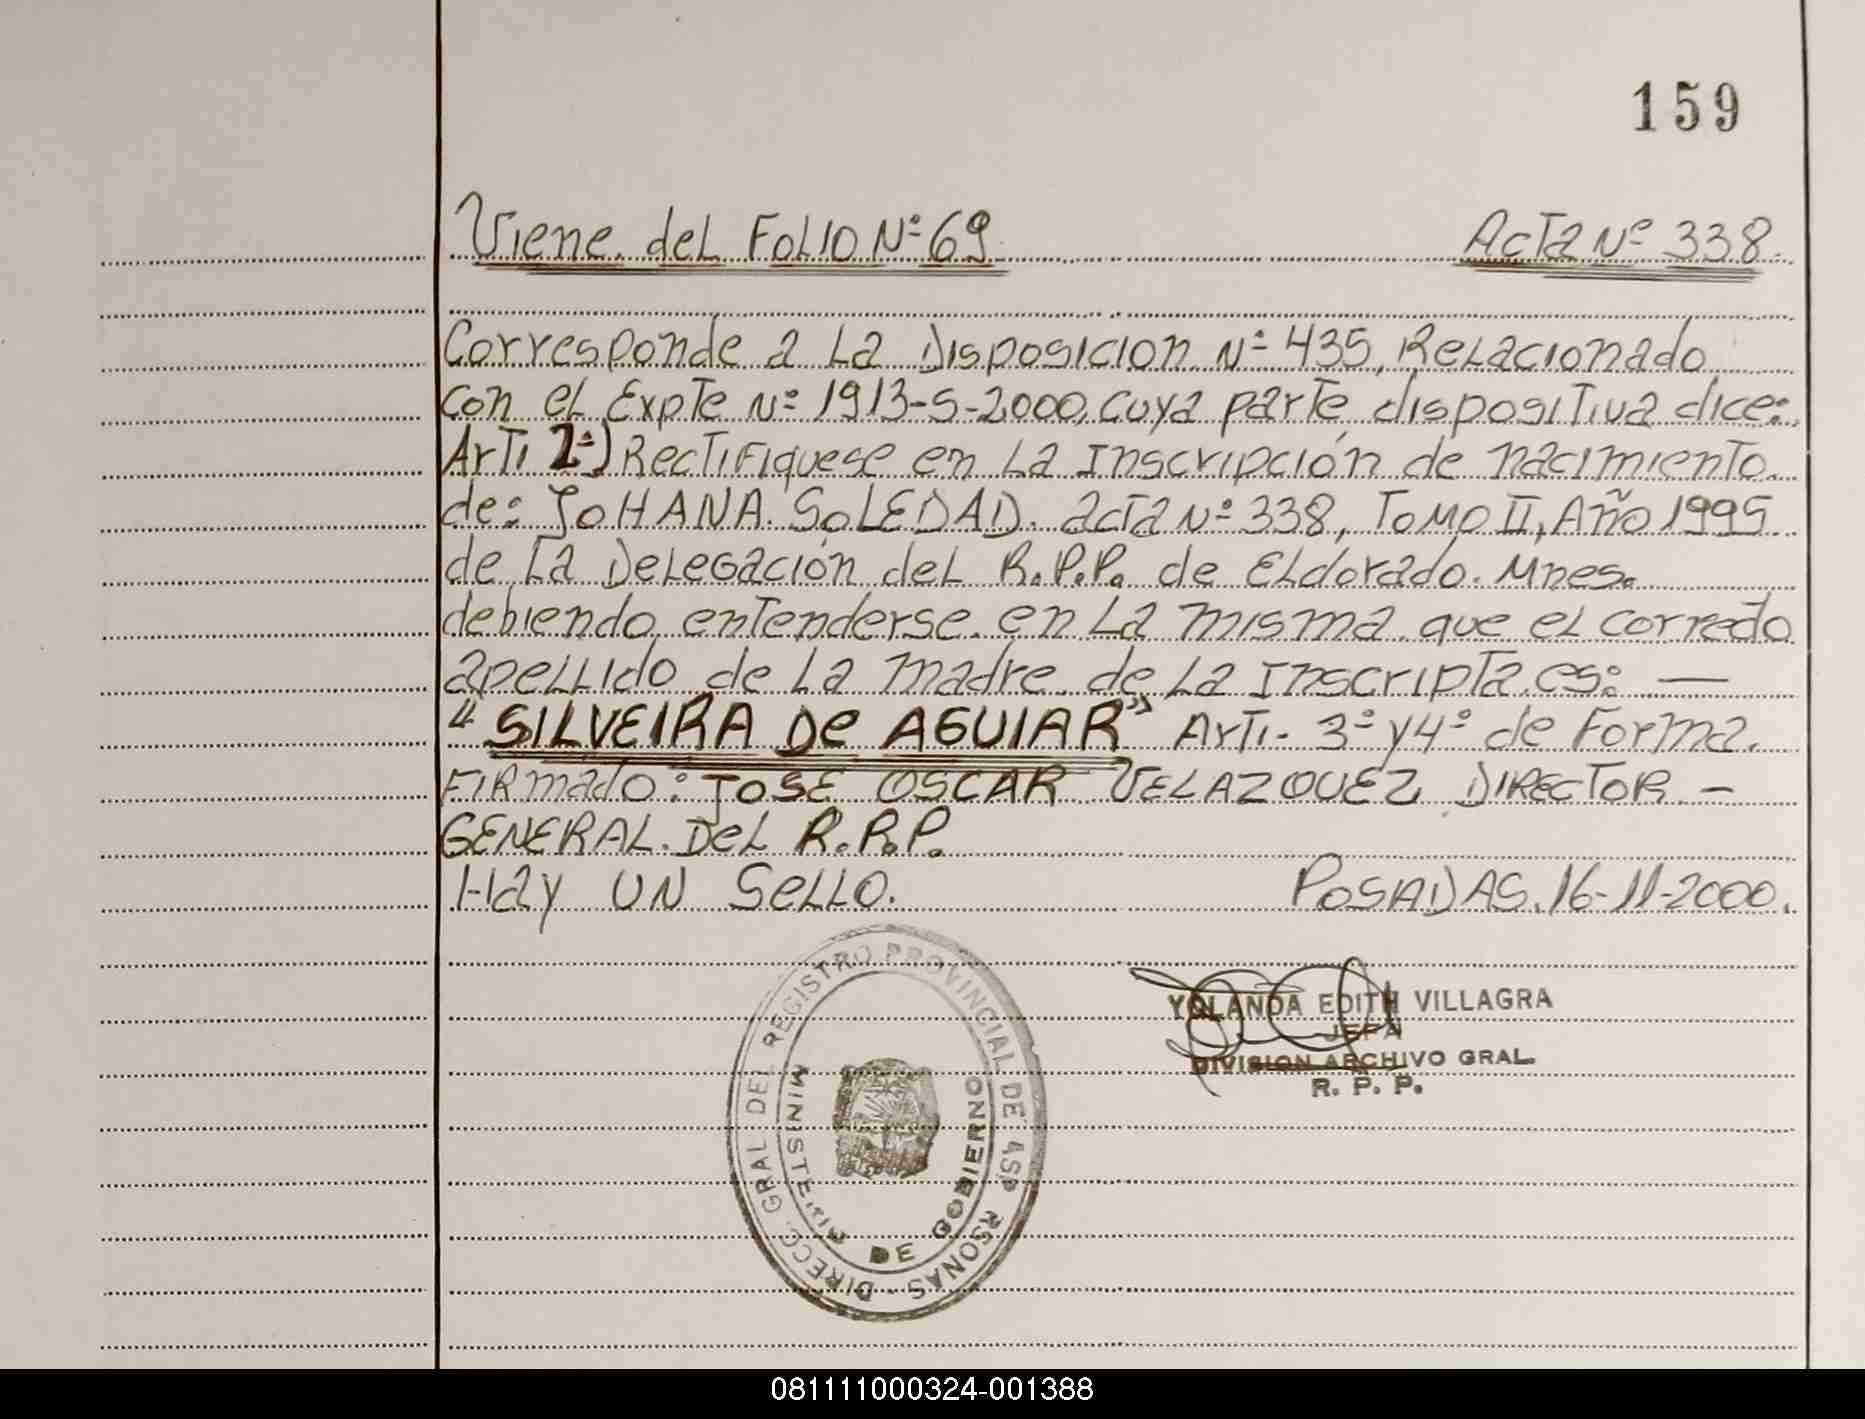 159
Viene del Folio Nº 69 Acta Nº 338.
Corresponde a La Disposicion Nº 435, Relacionado
con el Expte Nº 1913-S-2000, cuya parte dispositiva dice:
Arti 2º) Rectifiquese en La Inscripción de nacimiento
de: JOHANA SOLEDAD. acta Nº 338, Tomo II, Año 1995
de La Delegación del R.P.P. de Eldorado. Mnes.
debiendo entenderse en La misma que el correcto
apellido de La madre de La Inscripta es: —
"SILVEIRA De AGUIAR" Arti- 3º y 4º de Forma.
Firmado: JOSE OSCAR VELAZQUEZ DIRECTOR -
GENERAL DeL R.P.P.
Hay UN SeLLO. POSADAS, 16-11-2000.
DIRECC. GRAL DEL REGISTRO PROVINCIAL DE
MINISTERIO DE GOBIERNO
YOLANDA EDITH VILLAGRA
JEFA
DIVISION ARCHIVO GRAL.
R. P. P.
081111000324-001388